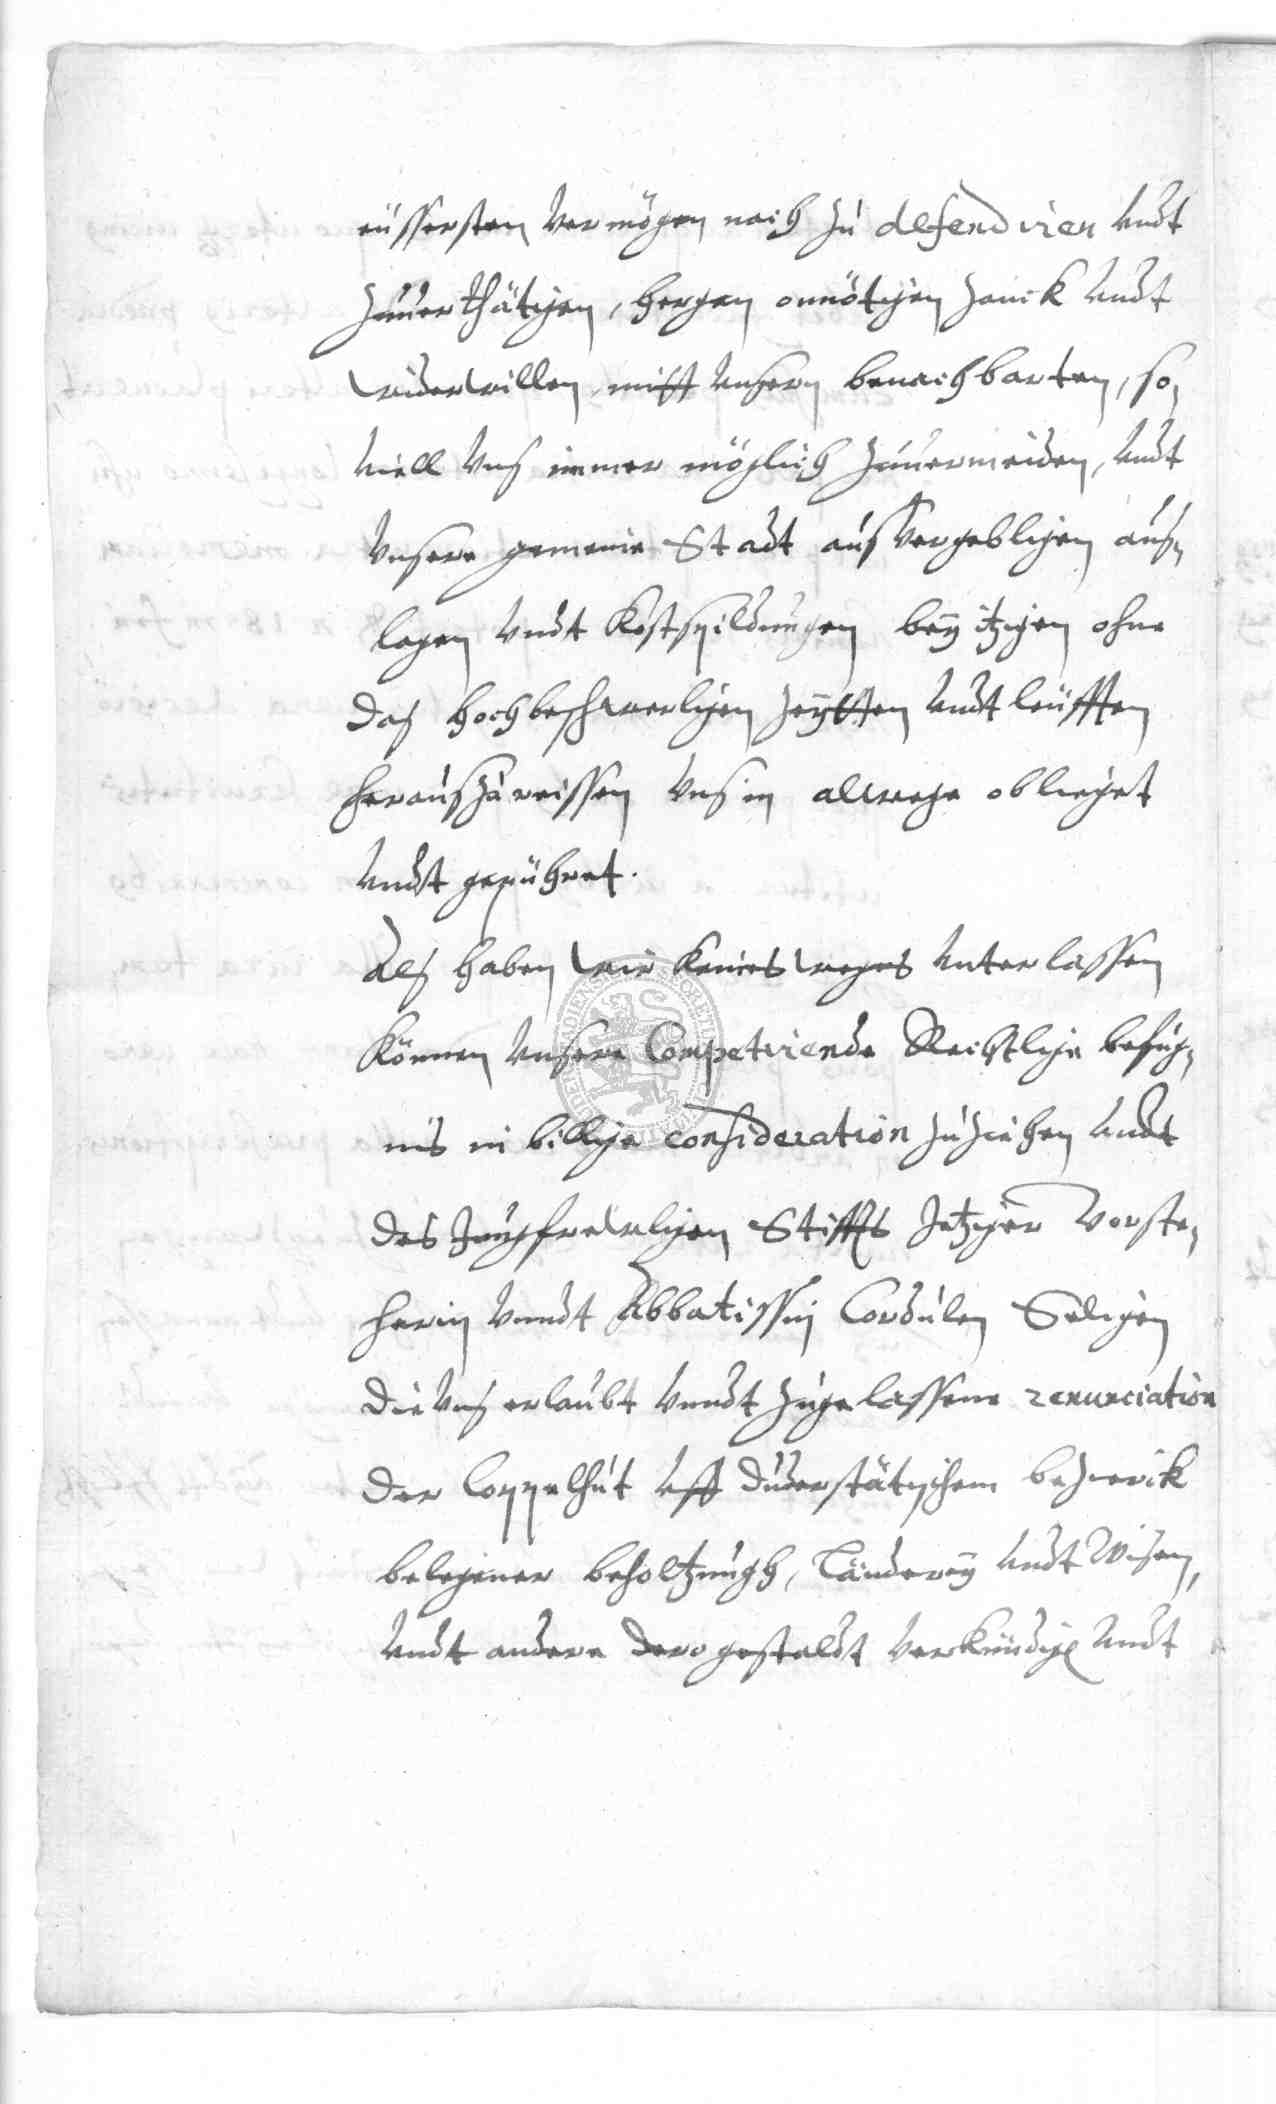 eüssersten vermögen nach zu defendiren undt
zuuerthätigen, hergegen onnötigen zanck undt
widerwillen mitt unsern benachbarten, so,
viell uns immer möglich zuuermeiden, undt
unsere gemeine Stadt aus vergebligen aus,
lagen undt Kostspildungen bey itzigen ohne
das hochbeschwerligen zeytten undt leüfften
herauszureissen uns in allwege oblieget
undt gepühret.
Als haben wir keinesweges unterlassen
können unsere Competirende Rechtlige befüg,
nis in billige consideration zuziehen undt
des Jungfrewligen Stiffts Jetziger Vorste,
herin vundt Abbatissin Cordulen Seligen
die uns erlaubt vundt zugelassene renunciation
der Coppelhut uff Duderstätischem bezierck
belegener beholtzungh, Länderey undt Wisen,
undt andere dero gestaldt verkündigt undt